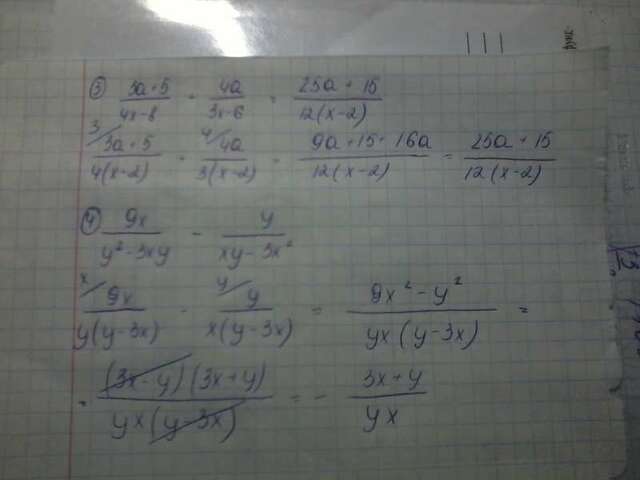 ③ (3a+5)/(4x-8) + 4a/(3x-6) = (25a+15)/(12(x-2))
3/ (3a+5)/(4(x-2)) + 4/ 4a/(3(x-2)) = (9a+15+16a)/(12(x-2)) = (25a+15)/(12(x-2))
④ 9x/(y²-3xy) - y/(xy-3x²)
x/ 9x/(y(y-3x)) - y/ y/(x(y-3x)) = (9x²-y²)/(yx(y-3x)) =
= ((3x-y)(3x+y))/(yx(y-3x)) = - (3x+y)/(yx)